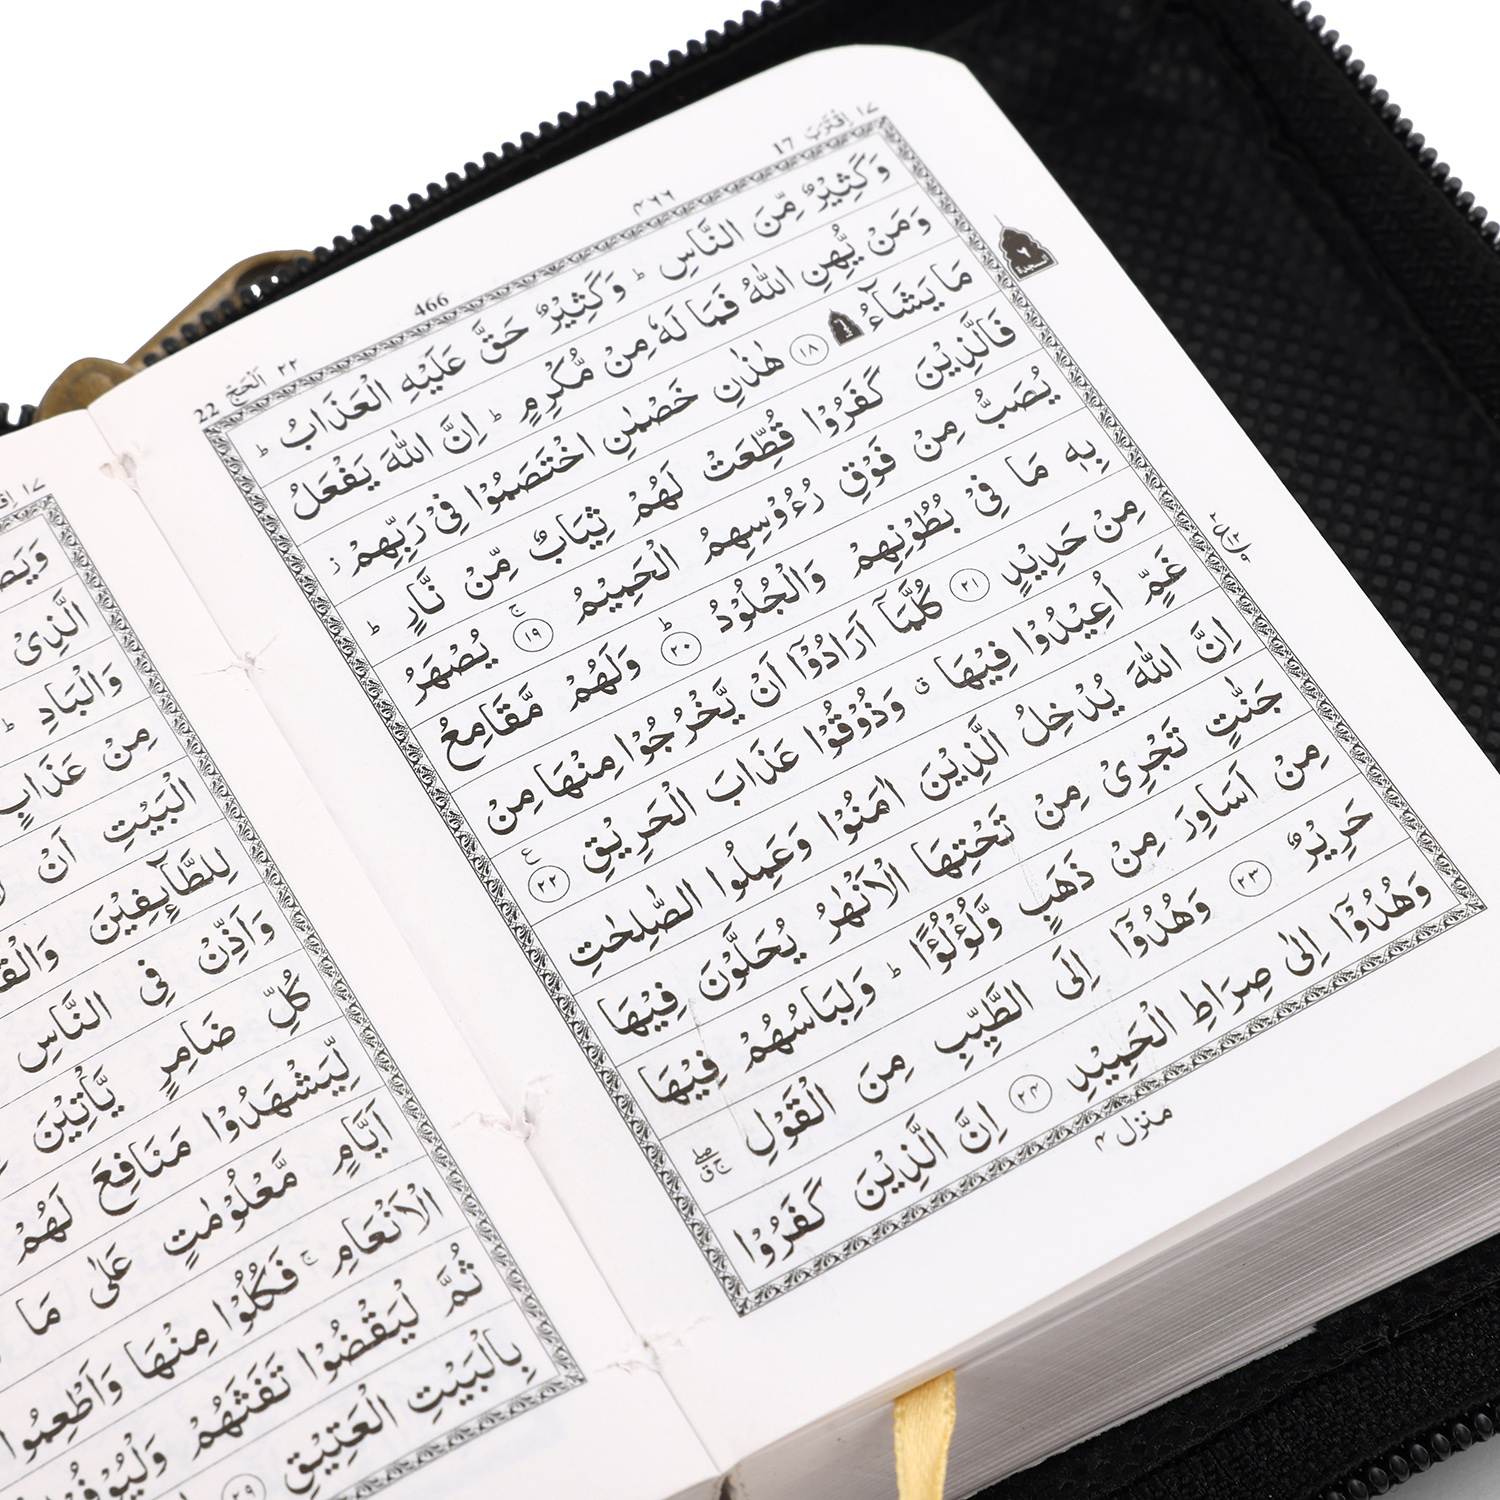 ١٧ اِقْتَرَبَ 17
٤٦٦
466
٢٢ اَلْحَجّ 22
وَكَثِيْرٌ مِّنَ النَّاسِ ؕ وَكَثِيْرٌ حَقَّ عَلَيْهِ الْعَذَابُ ؕ
وَمَنْ يُّهِنِ اللّٰهُ فَمَا لَهٗ مِنْ مُّكْرِمٍ ؕ اِنَّ اللّٰهَ يَفْعَلُ
مَا يَشَآءُ ۩ ١٨ هٰذٰنِ خَصْمٰنِ اخْتَصَمُوْا فِيْ رَبِّهِمْ ز
فَالَّذِيْنَ كَفَرُوْا قُطِّعَتْ لَهُمْ ثِيَابٌ مِّنْ نَّارٍ ؕ
يُصَبُّ مِنْ فَوْقِ رُءُوْسِهِمُ الْحَمِيْمُ ١٩ ۚ يُصْهَرُ
بِهٖ مَا فِيْ بُطُوْنِهِمْ وَالْجُلُوْدُ ٢٠ ؕ وَلَهُمْ مَّقَامِعُ
مِنْ حَدِيْدٍ ٢١ كُلَّمَآ اَرَادُوْٓا اَنْ يَّخْرُجُوْا مِنْهَا مِنْ
غَمٍّ اُعِيْدُوْا فِيْهَا ق وَذُوْقُوْا عَذَابَ الْحَرِيْقِ ٢٢ ع
اِنَّ اللّٰهَ يُدْخِلُ الَّذِيْنَ اٰمَنُوْا وَعَمِلُوا الصّٰلِحٰتِ
جَنّٰتٍ تَجْرِيْ مِنْ تَحْتِهَا الْاَنْهٰرُ يُحَلَّوْنَ فِيْهَا
مِنْ اَسَاوِرَ مِنْ ذَهَبٍ وَّلُؤْلُؤًا ؕ وَلِبَاسُهُمْ فِيْهَا
حَرِيْرٌ ٢٣ وَهُدُوْٓا اِلَى الطَّيِّبِ مِنَ الْقَوْلِ
وَهُدُوْٓا اِلٰى صِرَاطِ الْحَمِيْدِ ٢٤ اِنَّ الَّذِيْنَ كَفَرُوْا
منزل ٤
السجدة ٦
الثلٰثة
١٧
الَّذِيْ
وَالْبَادِ ؕ
مِنْ عَذَابٍ
الْبَيْتِ اَنْ
لِلطَّآئِفِيْنَ
وَاَذِّنْ فِي النَّاسِ
كُلِّ ضَامِرٍ يَّاْتِيْنَ
لِّيَشْهَدُوْا مَنَافِعَ لَهُمْ
اَيَّامٍ مَّعْلُوْمٰتٍ عَلٰى مَا
الْاَنْعَامِ ۚ فَكُلُوْا مِنْهَا وَاَطْعِمُوا
ثُمَّ لْيَقْضُوْا تَفَثَهُمْ
بِالْبَيْتِ الْعَتِيْقِ ٢٩